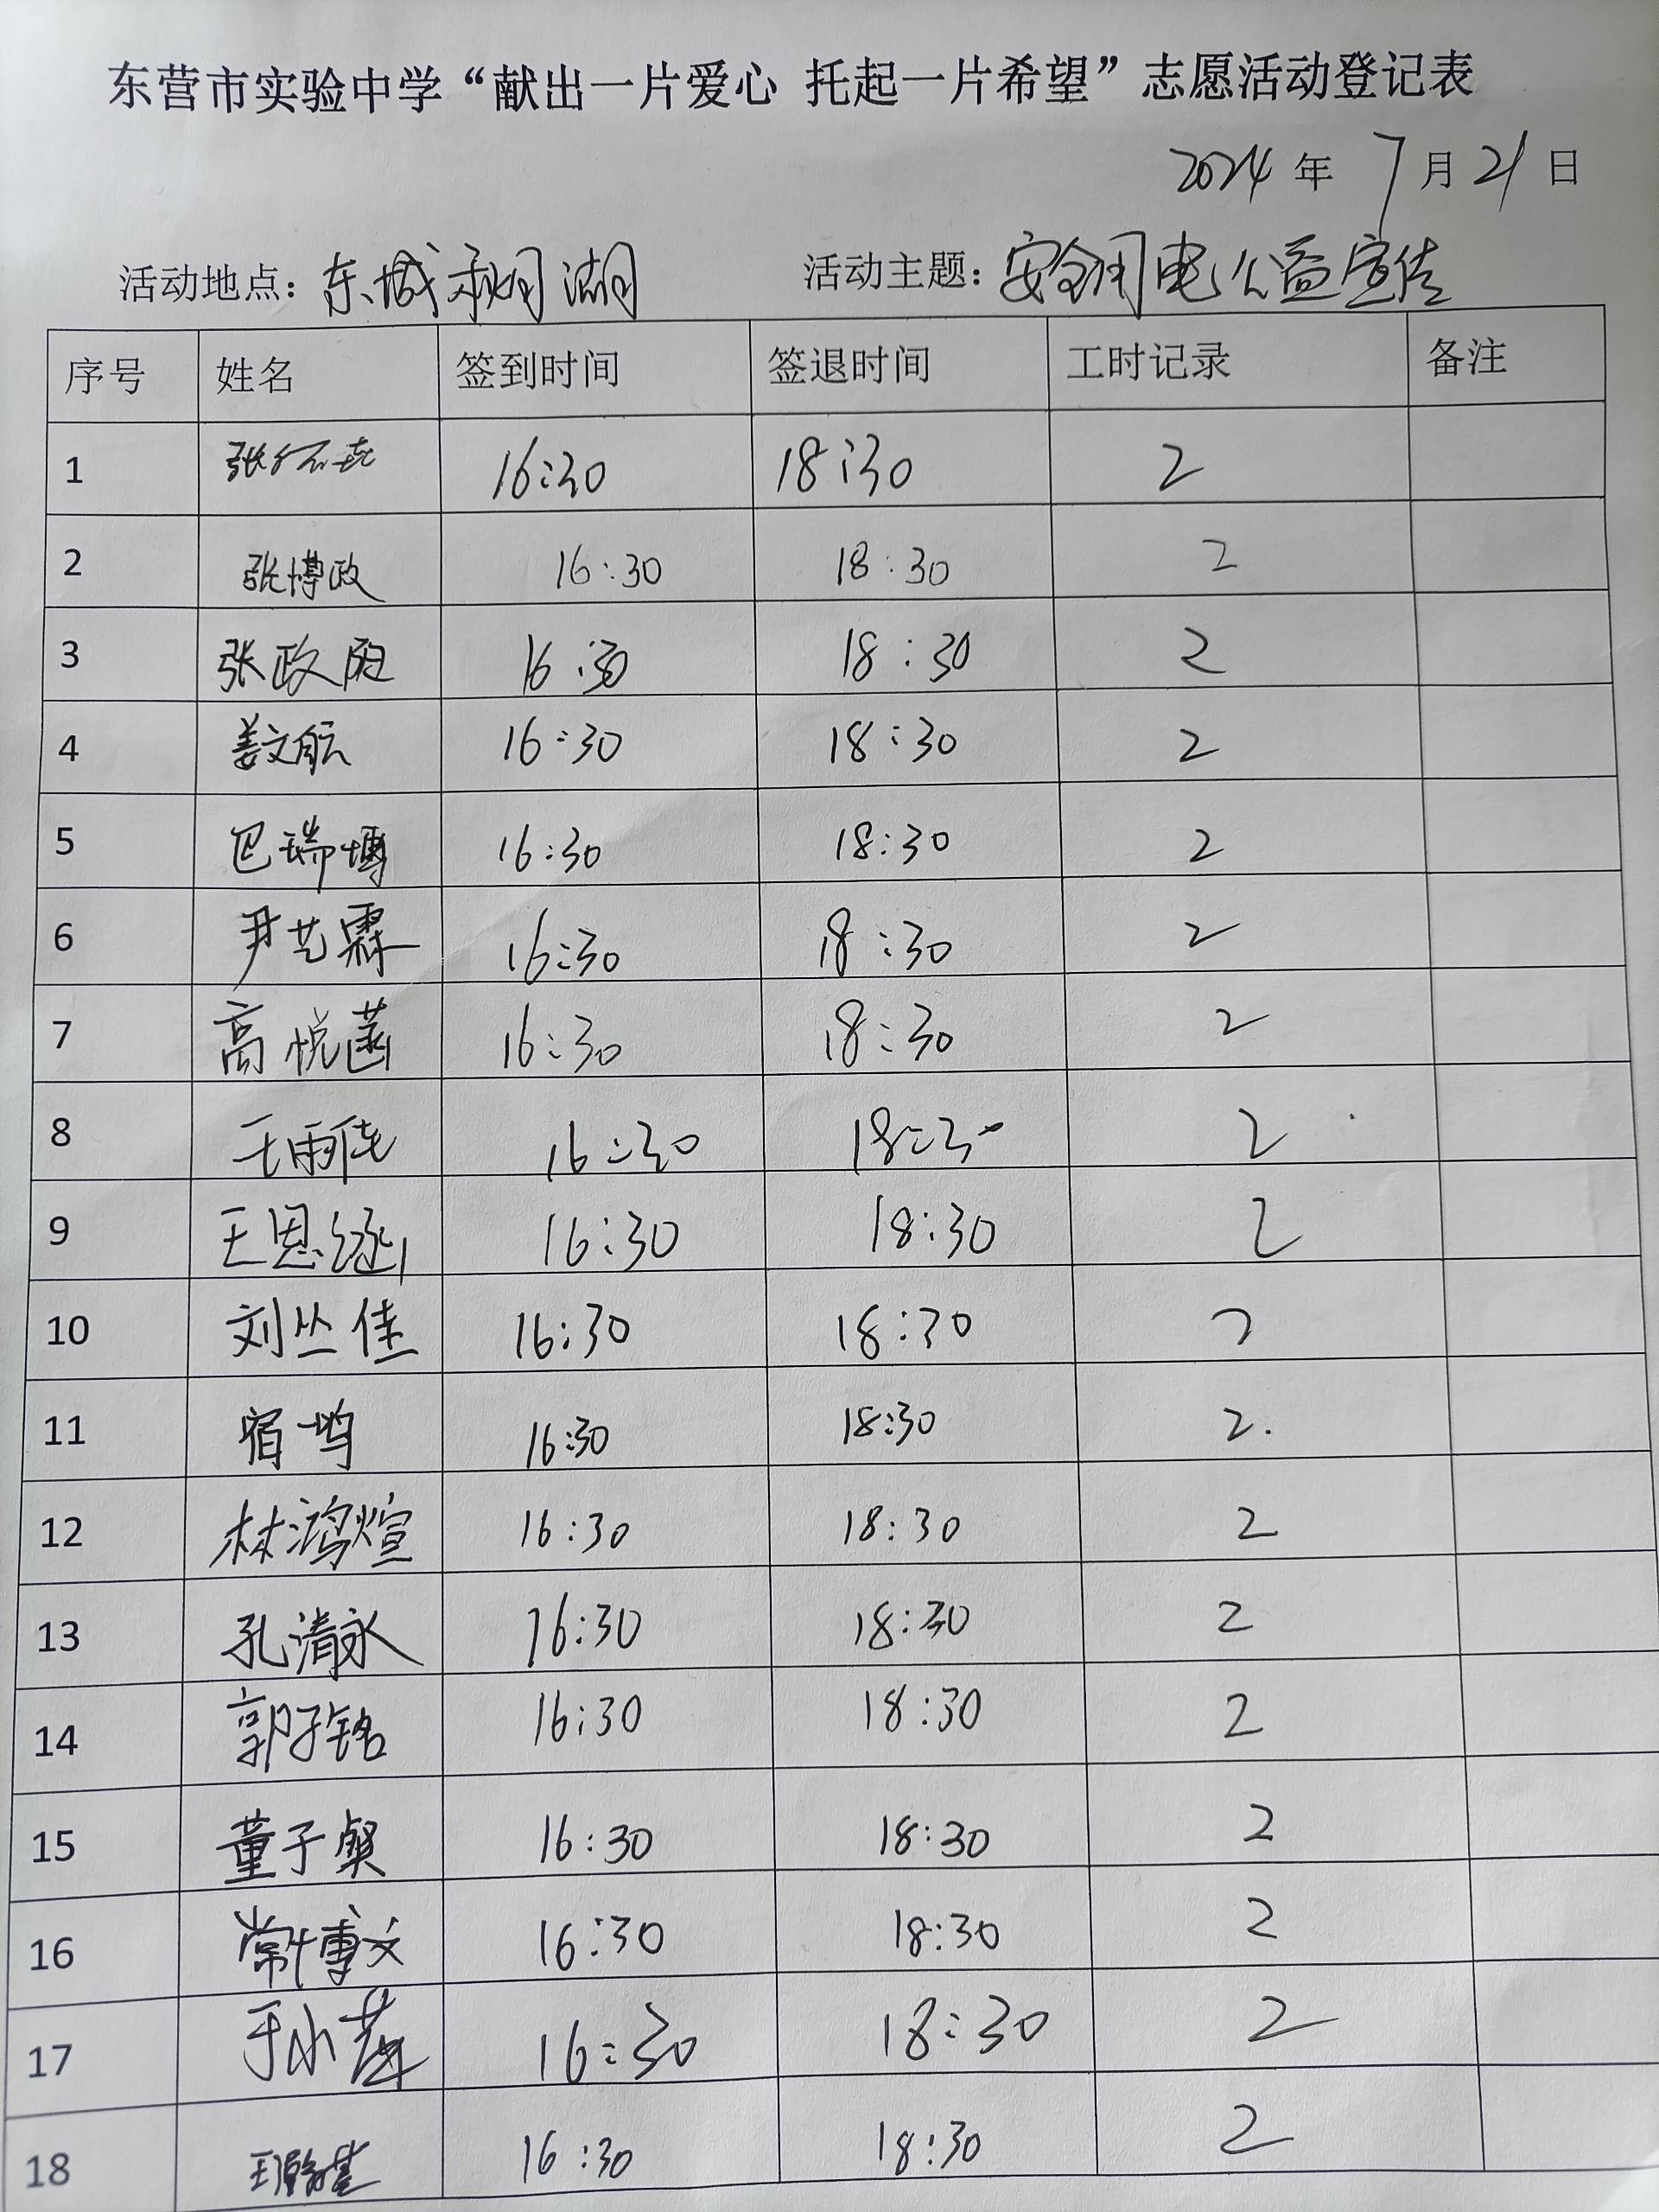 东营市实验中学“献出一片爱心 托起一片希望”志愿活动登记表
2024年 7月21日
活动地点：东城明湖 活动主题：安全用电公益宣传
序号 姓名 签到时间 签退时间 工时记录 备注
1 张 16:30 18:30 2
2 张博政 16:30 18:30 2
3 张政 16:30 18:30 2
4 姜文航 16:30 18:30 2
5 巴瑞博 16:30 18:30 2
6 尹艺霖 16:30 18:30 2
7 高悦菡 16:30 18:30 2
8 王雨佳 16:30 18:30 2
9 王恩涵 16:30 18:30 2
10 刘丛佳 16:30 18:30 2
11 宿 16:30 18:30 2.
12 林鸿煊 16:30 18:30 2
13 孔清永 16:30 18:30 2
14 郭子铭 16:30 18:30 2
15 董子粲 16:30 18:30 2
16 常博文 16:30 18:30 2
17 于小 16:30 18:30 2
18 王 16:30 18:30 2